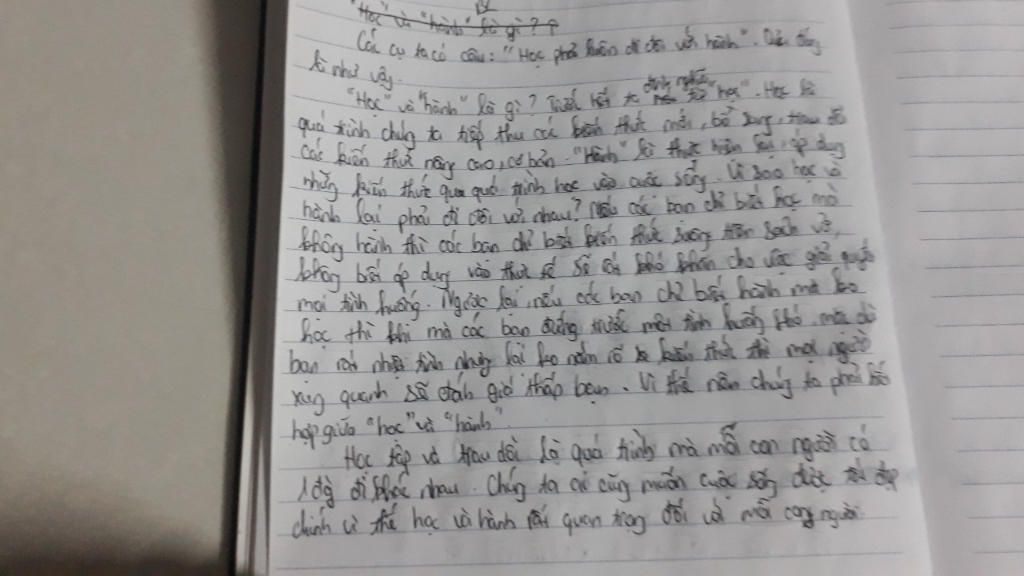 "Học" và "hành" là gì?
Các cụ ta có câu: "Học phải luôn đi đôi với hành". Quả đúng
là như vậy.
"Học" và "hành" là gì? Trước hết ta định nghĩa "học". Học là
quá trình chúng ta tiếp thu các kiến thức mới, bổ sung, trau dồi
các kiến thức nâng cao, cơ bản. "Hành" là thực hiện lại, áp dụng
những kiến thức qua quá trình học vào cuộc sống. Vì sao học và
hành lại phải đi đôi với nhau? Nếu các bạn chỉ biết học mà
không hành thì các bạn chỉ biết kiến thức suông trên sách vở,
không biết áp dụng vào thực tế sẽ rất khó khăn cho việc giải quyết
mọi tình huống. Ngược lại, nếu các bạn chỉ biết hành mà ko
học thì khi mà các bạn đứng trước một tình huống khó, mặc dù
bạn rất nhiệt tình nhưng lại ko nắm rõ kiến thức thì mọi người
xung quanh sẽ đánh giá thấp bạn. Vì thế nên chúng ta phải kết
hợp giữa "học" và "hành"
Học tập và trau dồi là quá trình mà mỗi con người có
đi khác nhau. Chúng ta ai cũng muốn cuộc sống được tốt đẹp
chính vì thế học và hành rất quan trọng đối với mỗi con người.